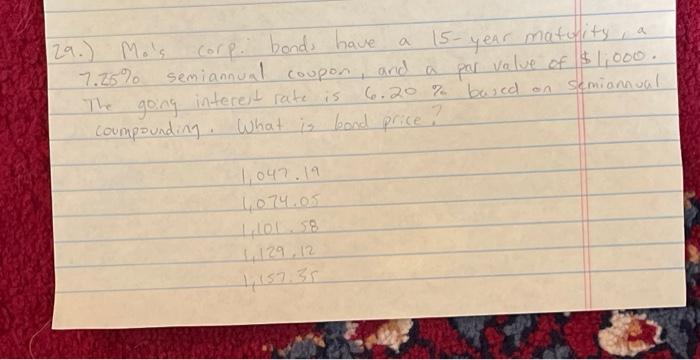 29.) Mo's corp. bonds have a 15-year maturity, a
7.25% semiannual coupon, and a par value of $1,000.
The going interest rate is 6.20% based on semiannual
coumpounding. What is bond price?
1,047.19
1,074.05
1,101.58
1,129.12
1,157.35